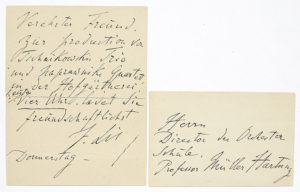 Verehrter Freund,
Zur Production des
Tschaikowski Trio
und Napravnik Quartett
in der Hofgärtnerei
Vier Uhr, ladet Sie
freundschaftlichst
F. Liszt
Donnerstag –
Herrn
Director der Orchester
Schule,
Professor Müller Hartung